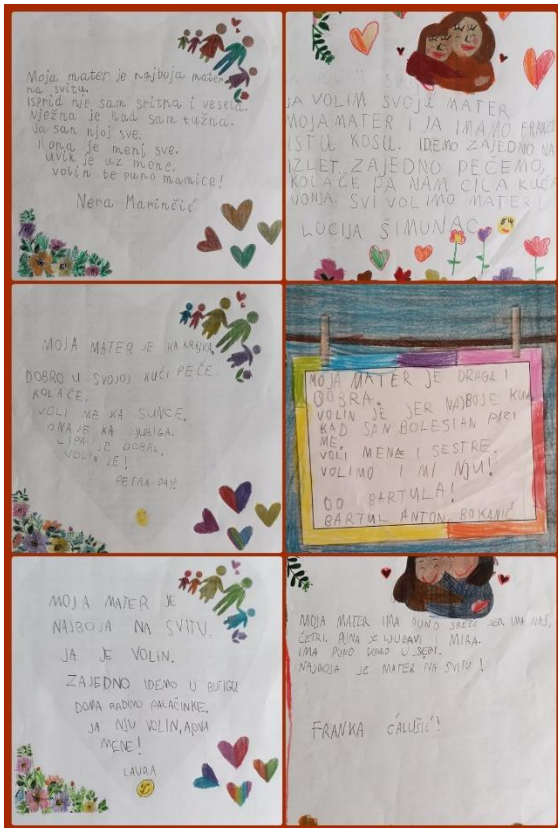 Moja mater je najboja mater
na svitu.
Isprid nje sam sritna i vesela.
Nježna je kad sam tužna.
Ja san njoj sve.
I ona je meni sve.
Uvik je uz mene.
Volin te puno mamice!
Nera Marinčić
JA VOLIM SVOJU MATER
MOJA MATER I JA IMAMO
ISTU KOSU. IDEMO ZAJEDNO NA
IZLET. ZAJEDNO PEČEMO,
KOLAČE PA NAM CILA KUĆ
VONJA. SVI VOLIMO MATER!
LUCIJA ŠIMUNAC
MOJA MATER JE KA KRAJICA
DOBRO U SVOJOJ KUĆI PEČE
KOLAČE.
VOLI ME KA SUNCE.
ONA JE KA
LIPA JE DOBRA.
VOLIN JE!
PETRA
MOJA MATER JE DRAGA I
DOBRA.
VOLIN JE JER NAJBOJE KUVA
KAD SAN BOLESTAN PAZI
ME.
VOLI MENE I SESTRE.
VOLIMO I MI NJU!
OD BARTULA!
BARTUL ANTON BOKANIĆ
MOJA MATER JE
NAJBOJA NA SVITU.
JA JE VOLIN.
ZAJEDNO IDEMO U BUTIGU
DOMA RADIMO PALAČINKE.
JA NJU VOLIN, A ONA
MENE!
LAURA
MOJA MATER IMA PUNO SRIĆE JER IMA NAS,
ČETRI. PUNA JE LJUBAVI I MIRA.
IMA PUNO DOBRO U SEBI.
NAJBOJA JE MATER NA SVITU!
FRANKA ĆALUŠIĆ!